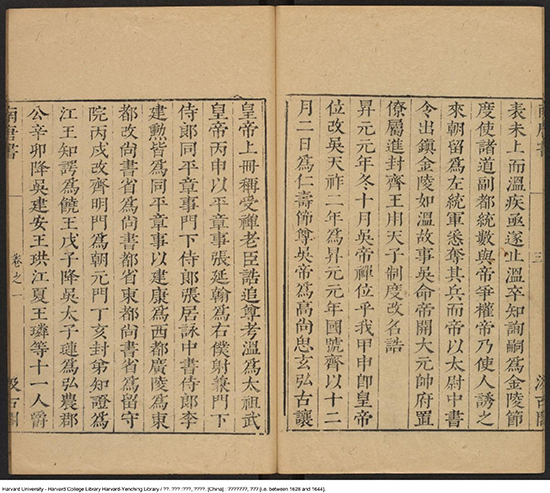 南唐書 三 汲古閣
表未上而溫疾亟遂止溫卒知詢嗣爲金陵節
度使諸道副都統數與帝爭權帝乃使人誘之
來朝留爲左統軍悉奪其兵而帝以太尉中書
令出鎮金陵如溫故事吳命帝開大元帥府置
僚屬進封齊王用天子制度改名誥
昇元元年冬十月吳帝禪位乎我甲申卽皇帝
位改吳天祚二年爲昇元元年國號齊以十二
月二日爲仁壽節尊吳帝爲高尚思玄弘古讓
皇帝上冊稱受禪老臣誥追尊考溫爲太祖武
皇帝丙申以平章事張延翰爲右僕射兼門下
侍郎同平章事門下侍郎張居詠中書侍郎李
建勲皆爲同平章事以建康爲西都廣陵爲東
都改尚書省爲尚書都省東都尚書省爲留守
院丙戌改齊明門爲朝元門丁亥封弟知證爲
江王知諤爲饒王戊子降吳太子璉爲弘農郡
公辛卯降吳建安王珙江夏王璘等十一人爵
南唐書 卷之一 汲古閣
Harvard University - Harvard College Library Harvard-Yenching Library / ??. ???. :???, ????. [China] : ???????, ??? [i.e. between 1628 and 1644].